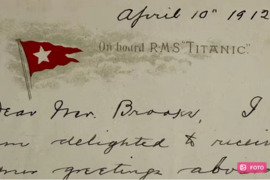 April 10th 1912
On board R.M.S. "TITANIC".
Dear Mr. Brooks, I
am delighted to receive
your greetings
FOTO